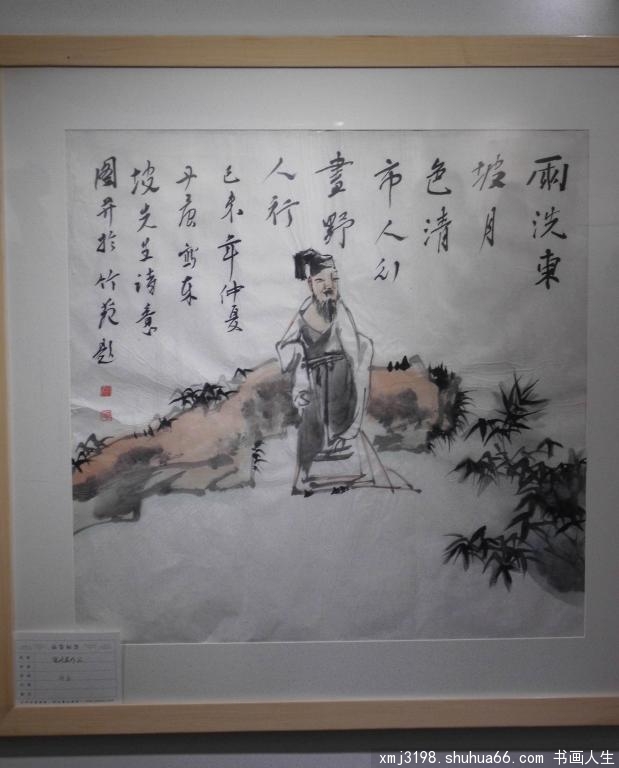 雨洗東
坡月
色清
市人行
盡野
人行
己未年仲夏
丹寫東
坡先生詩意
圖并於竹苑題
xmj3198.shuhua66.com 书画人生